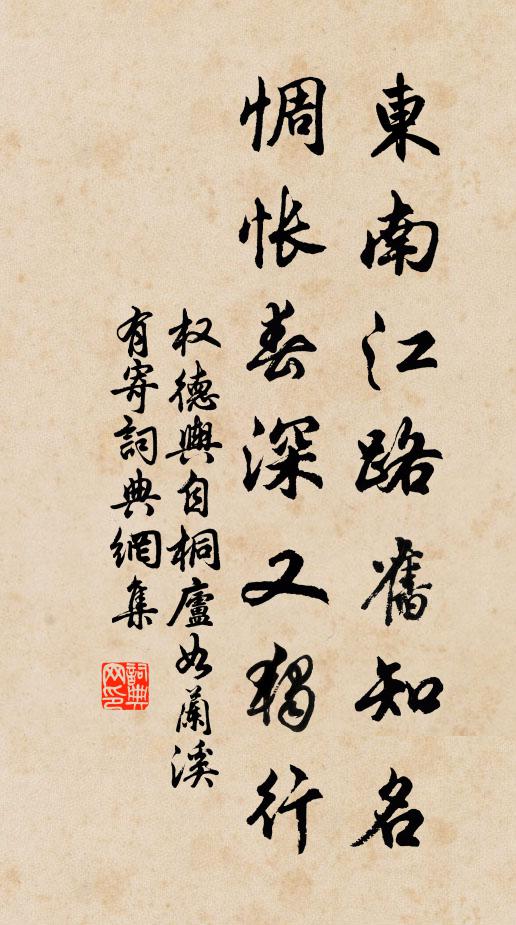 東南江路舊知名
惆悵春深又獨行
权德輿自桐廬如蘭溪
有寄詞典網集
詞典
网印